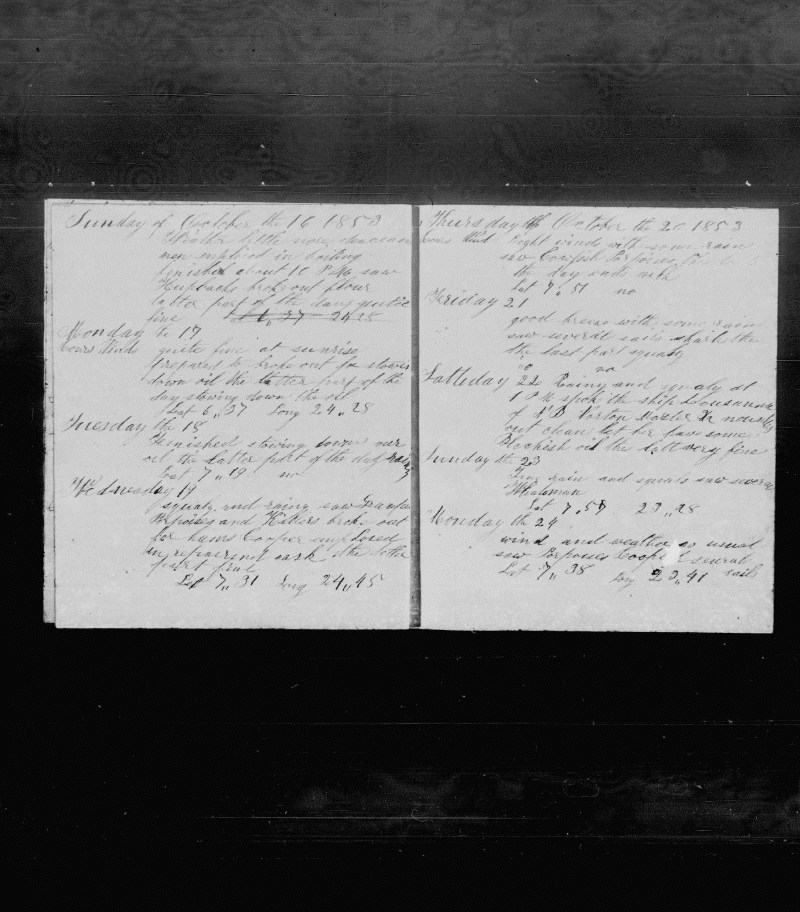 Sunday of October the 16 1853
Weather little more
men employed in boiling
finished about 10 P M saw
Humpbacks broke out flour
latter part of the day quite
fine
Monday the 17
quite fine at sunrise
prepared to broke out for stowing
down oil the latter part of the
day stowing down the oil
Lat 6,,37 Long 24,,28
Tuesday the 18
Finished stowing down our
oil the latter part of the day rainy
Lat 7,,19 no
Wednesday 19
squaly and rainy saw
Porpoises and Killers broke out
for hams Cooper employed
in repairing cask the latter
part fine
Lat 7,,31 Long 24,,45
Thursday of October the 20 1853
light winds with some rain
saw Cowfish Porpoises
the day ends with
Lat 7,,51 no
Friday 21
good breeze with some rain
saw several sails
the last part squaly
no no
Satteday 22 Rainy and squaly at
1 P M spok the ship Lousanna
of N B Norton
out clean let her have some
Blackfish oil the latt very fine
Sunday the 23
rain and squals saw several
Whaleman
Lat 7,,57 23,,28
Monday the 24
wind and weather as usual
saw Porpoises several
Lat 7,,38 Long 23,,41 sails